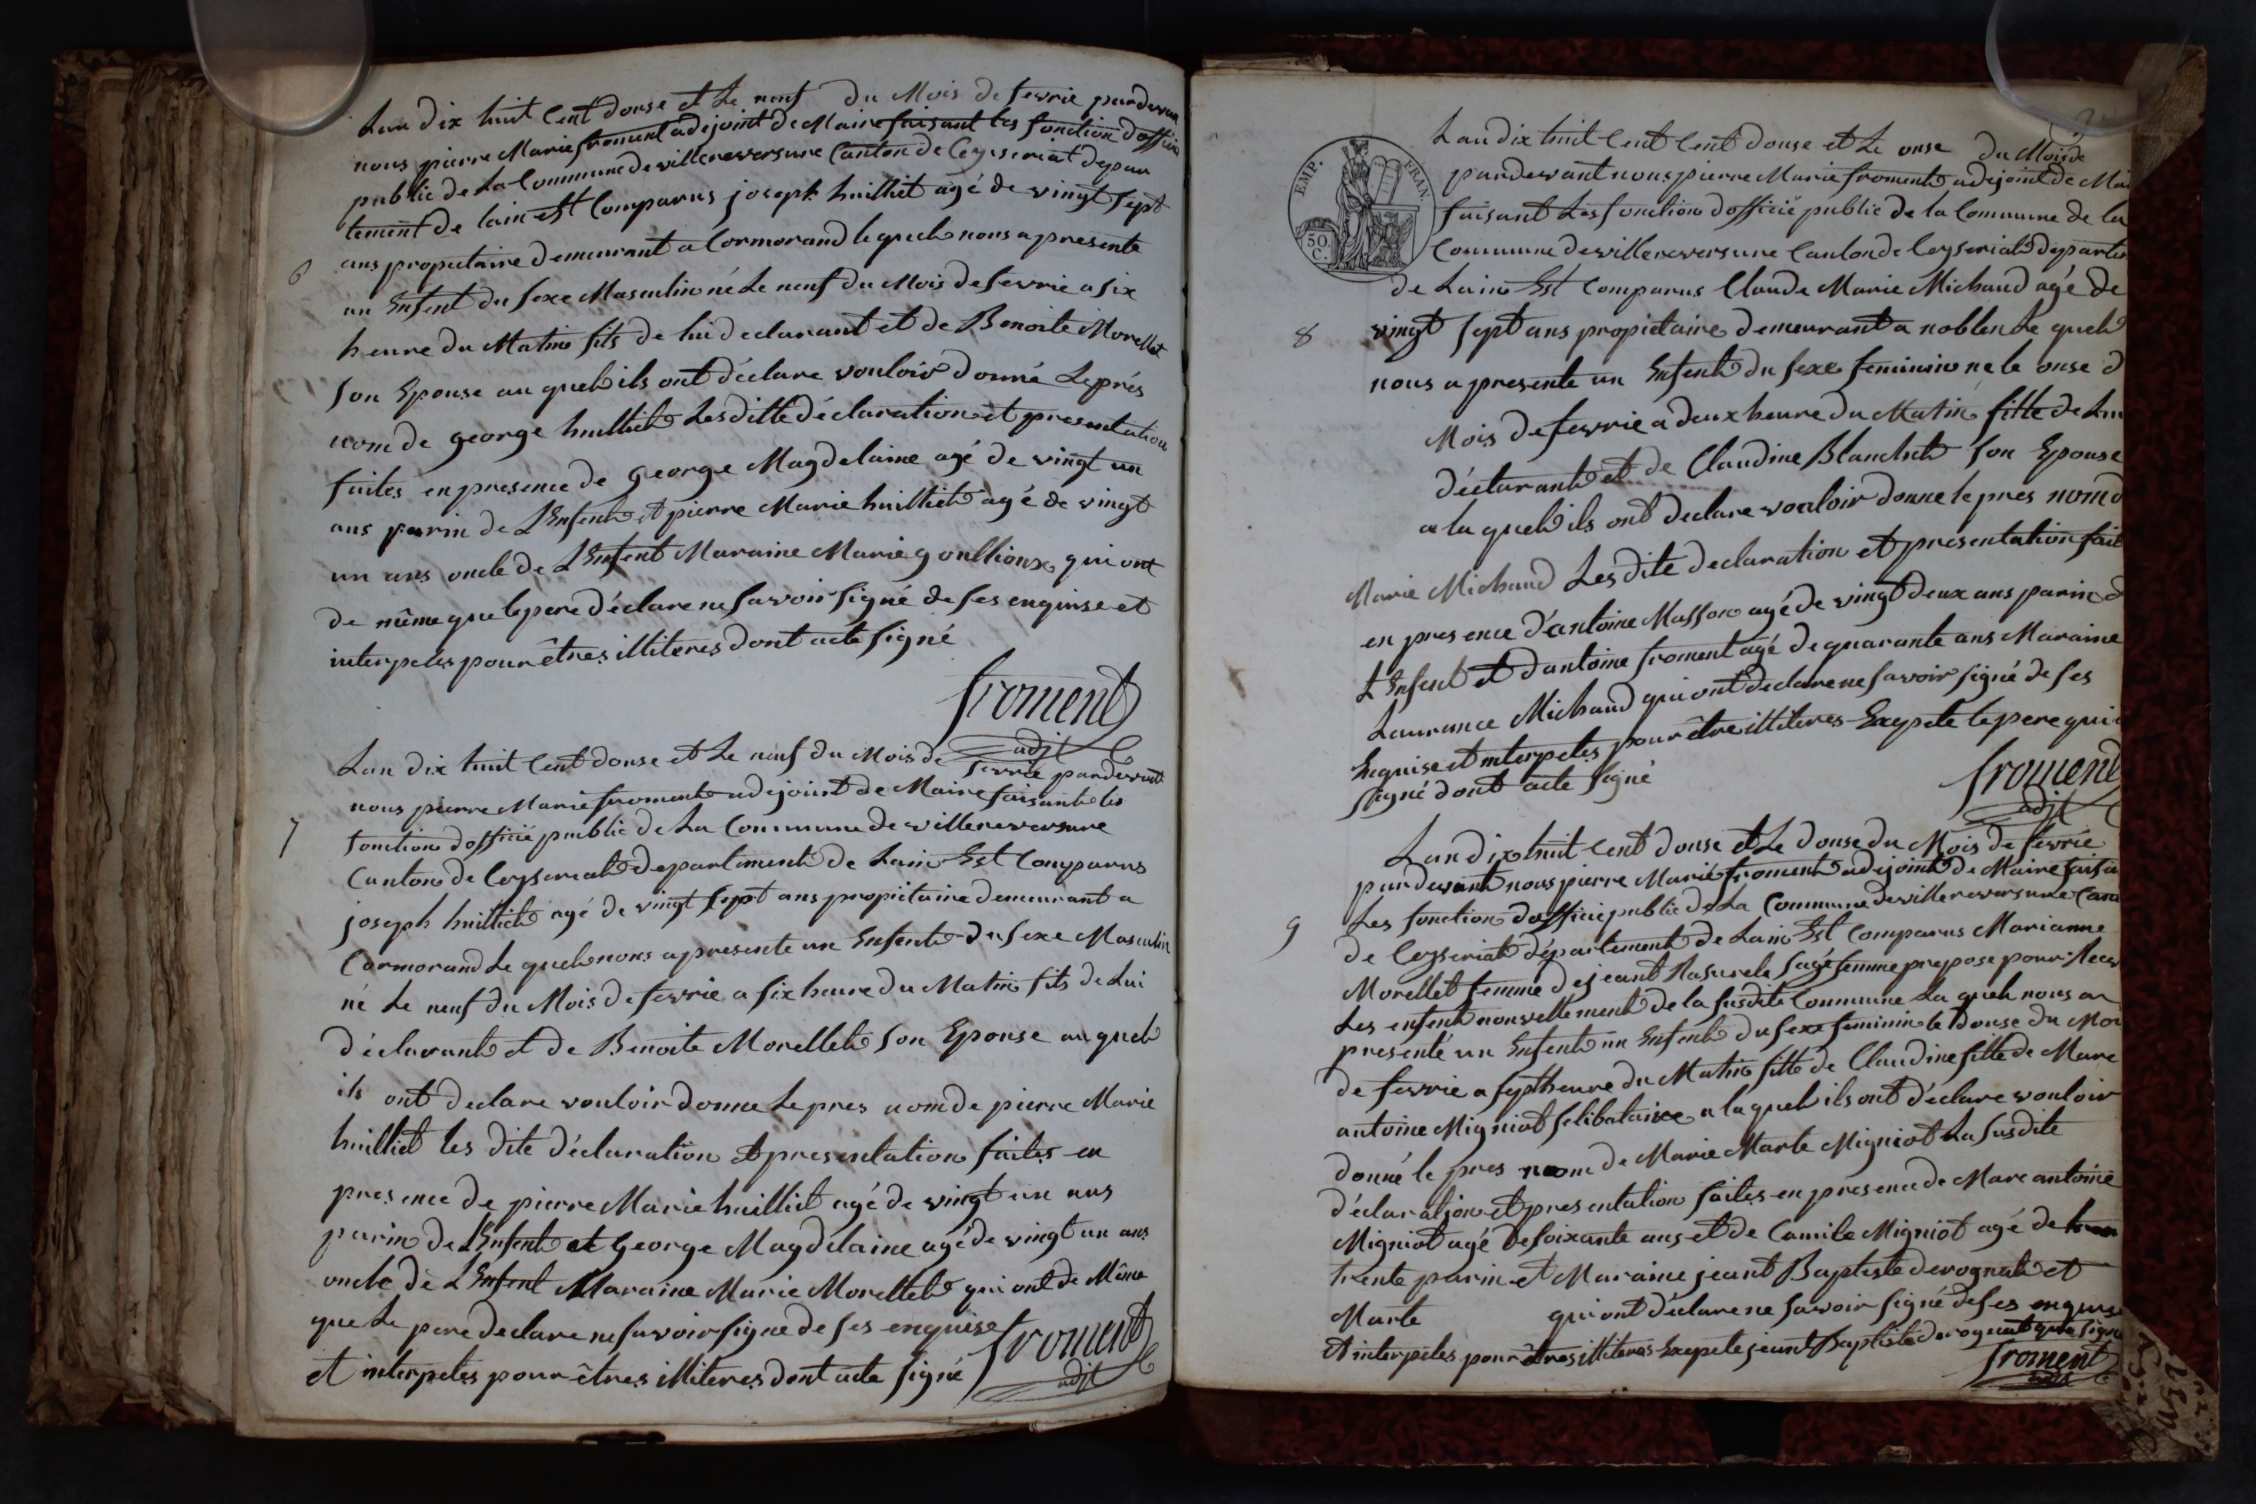 Lan dix huit Cent douse et Le neuf du Mois de fevrie pardevan
nous pierre Marie froment adejoint de Maire faisant les fonction d'officie
public de La Commune de villereversure Canton de Ceyseriat depar
tement de lain est Comparus joseph huilliet agé de vingt sept
ans propietaire demeurant a Cormorand le quel nous a presente
6
un Enfent du sexe Masculin né Le neuf du Mois de fevrie a six
heure du Matin fils de lui declarant et de Benoite Morellet
son Epouse au quel ils ont déclare vouloir donné Le prés
nom de george huilliet Les ditte déclaration et presentation
faites en presence de george Magdelaine agé de vingt un
ans parin de L'Enfent et pierre Marie huilliet agé de vingt
un ans oncle de L'Enfent Maraine Marie goullioux qui ont
de même que le pere déclare ne savoir signé de ses enquise et
interpeles pour êtres illiteres dont acte signé
froment
adjt
Lan dix huit Cent douse et Le neuf du Mois de
fevrie pardevant
nous pierre Marie froment adejoint de Maire faisant les
7
fonction d'officié public de La Commune de villereversure
Canton de Ceyseriat departement de Lain Est Comparus
joseph huilliet agé de vingt sept ans propietaire demeurant a
Cormorand Le quel nous a presente un Enfent du sexe Masculin
né Le neuf du Mois de fevrie a six heure du Matin fils de Lui
déclarant et de Benoite Morellet son Epouse au quel
ils ont declare vouloir donne Le pres nom de pierre Marie
huilliet les dite déclaration et presentation faites en
presence de pierre Marie huilliet agé de vingt un ans
parin de L'Enfent et George Magdelaine agé de vingt un ans
oncle de L'Enfent Maraine Marie Morellet qui ont de Même
que Le pere declare ne savoir signe de ses enquise
et interpeles pour êtres illiteres dont acte signé
froment
adjt
EMP. FRAN.
50
C.
Lan dix huit Cent Cent douse et Le onse du Mois de
pardevant nous pierre Marie froment adejoint de Mai
faisant Les fonction d'officié public de la Commune de la
Commune de villereversure Canton de Ceyseriat departe
de Lain Est Comparus Claude Marie Michaud agé de
8
vingt sept ans propietaire demeurant a noblen Le quel
nous a presente un Enfent du sexe feminin ne le onse d
Mois de fevrie a deux heure du Matin fille de Lui
déclarant et de Claudine Blanchet son Epouse
a la quel ils ont declare vouloir donne le pres nom d
Marie Michaud Les dite declaration et presentation fait
en presence d'antoine Masson agé de vingt deux ans parin d
L'Enfent et dantoine froment agé de quarante ans Maraine
Laurance Michaud qui ont declare ne savoir signé de ses
Enquise et interpeles pour être illiteres Exepte le pere qui
signé dont acte signé
froment
adjt
Lan dix huit Cent douse et Le douse du Mois de fevrie
pardevant nous pierre Marie froment adejoint de Maire faisa
9
Les fonction d'officie public de La Commune de villereversure Can
de Ceyseriat département de Lain Est Comparus Marianne
Morellet femme de jeant Rasurel sage femme prepose pour Recev
Les enfent nouvellement de la susdite Commune La quel nous a
presenté un Enfent un Enfent du sexe feminin le douse du Moi
de fevrie a sept heure du Matin fille de Claudine fille de Marc
antoine Migniot selibataire a la quel ils ont déclare vouloir
donné le pres nom de Marie Marte Migniot La susdite
déclaration et presentation faites en presence de Marc antoine
Migniot agé de soixante ans et de Camile Migniot agé de
trente parin et Maraine jeant Baptiste derognat et
Marte qui ont déclare ne savoir signé de ses enquise
et interpeles pour êtres illiteres Exepete jeant Baptiste derognat qui a signe
froment
adjt